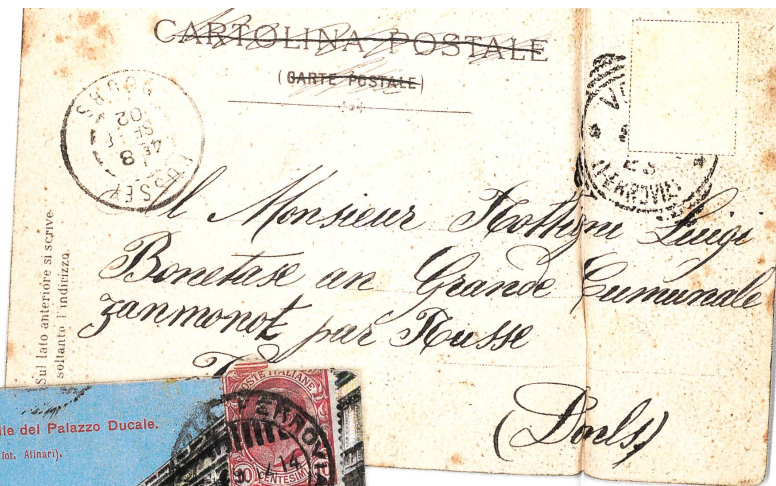 CARTOLINA POSTALE
(CARTE POSTALE)
DOUBS
02
8
Sul lato anteriore si scrive
soltanto l'indirizzo.
Monsieur Luigi
Bonetase an Grande Cumunale
zanmonot par Russe
(Doubs)
ile del Palazzo Ducale.
fot. Alinari).
POSTE ITALIANE
10 CENTESIMI